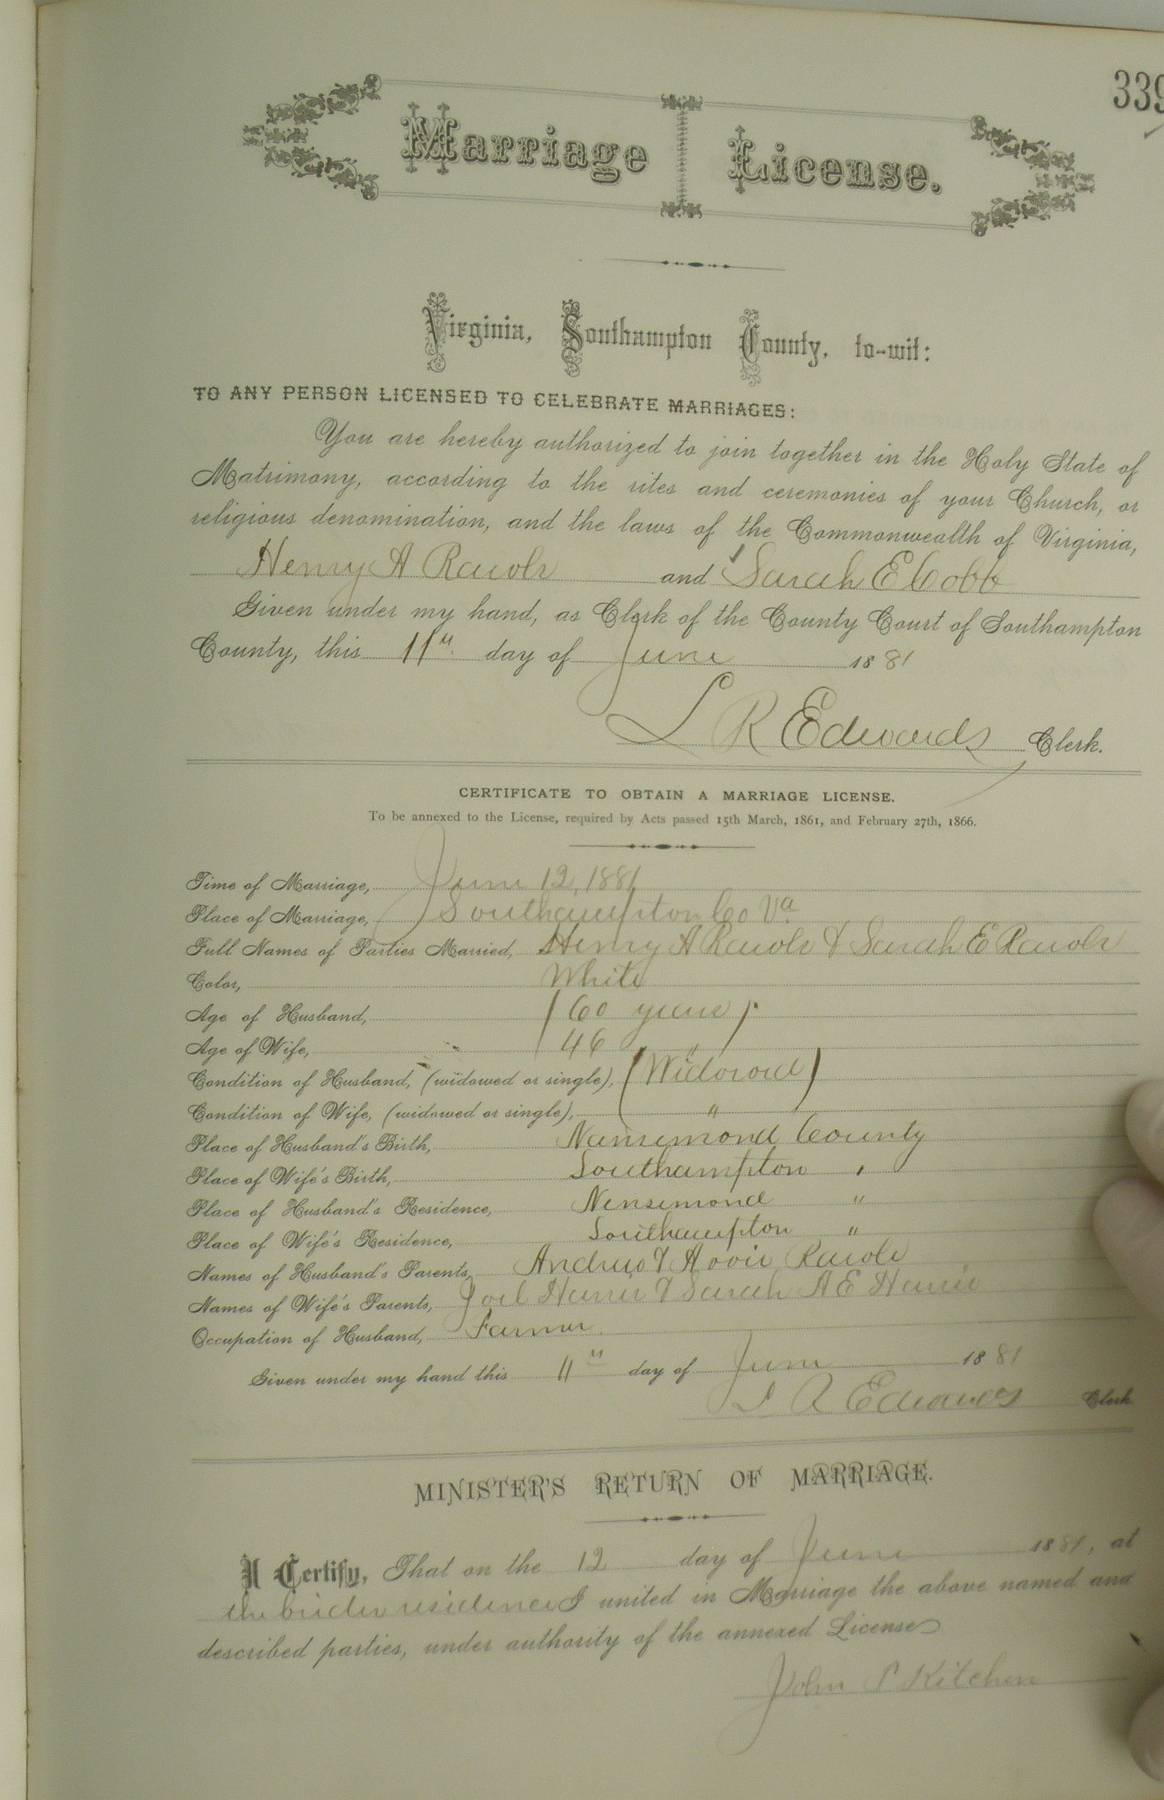 339
Marriage License.
Virginia, Southampton County, to-wit:
TO ANY PERSON LICENSED TO CELEBRATE MARRIAGES:
You are hereby authorized to join together in the Holy State of
Matrimony, according to the rites and ceremonies of your Church, or
religious denomination, and the laws of the Commonwealth of Virginia,
Henry A Rawls and Sarah E Cobb
Given under my hand, as Clerk of the County Court of Southampton
County, this 11th day of June 1881
L R Edwards Clerk.
CERTIFICATE TO OBTAIN A MARRIAGE LICENSE.
To be annexed to the License, required by Acts passed 15th March, 1861, and February 27th, 1866.
Time of Marriage, June 12, 1881
Place of Marriage, Southampton Co Va
Full Names of Parties Married, Henry A Rawls & Sarah E Rawls
Color, White
Age of Husband, 60 years
Age of Wife, 46 "
Condition of Husband, (widowed or single), Widowed
Condition of Wife, (widowed or single), "
Place of Husband's Birth, Nansemond County
Place of Wife's Birth, Southampton "
Place of Husband's Residence, Nansemond "
Place of Wife's Residence, Southampton "
Names of Husband's Parents, & Rawls
Names of Wife's Parents, Joel & Sarah A E
Occupation of Husband, Farmer
Given under my hand this 11th day of June 1881
L R Edwards Clerk
MINISTER'S RETURN OF MARRIAGE.
I Certify, That on the 12 day of June 1881, at
the brides residence I united in Marriage the above named and
described parties, under authority of the annexed License
John S Kitchen